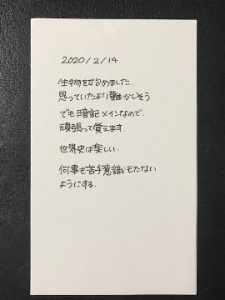 2020/2/14
生物を始めました.
思っていたより難かしそう
でも暗記メインなので.
頑張って覚えます.
世界史は楽しい.
何事も苦手意識もたない
ようにする.